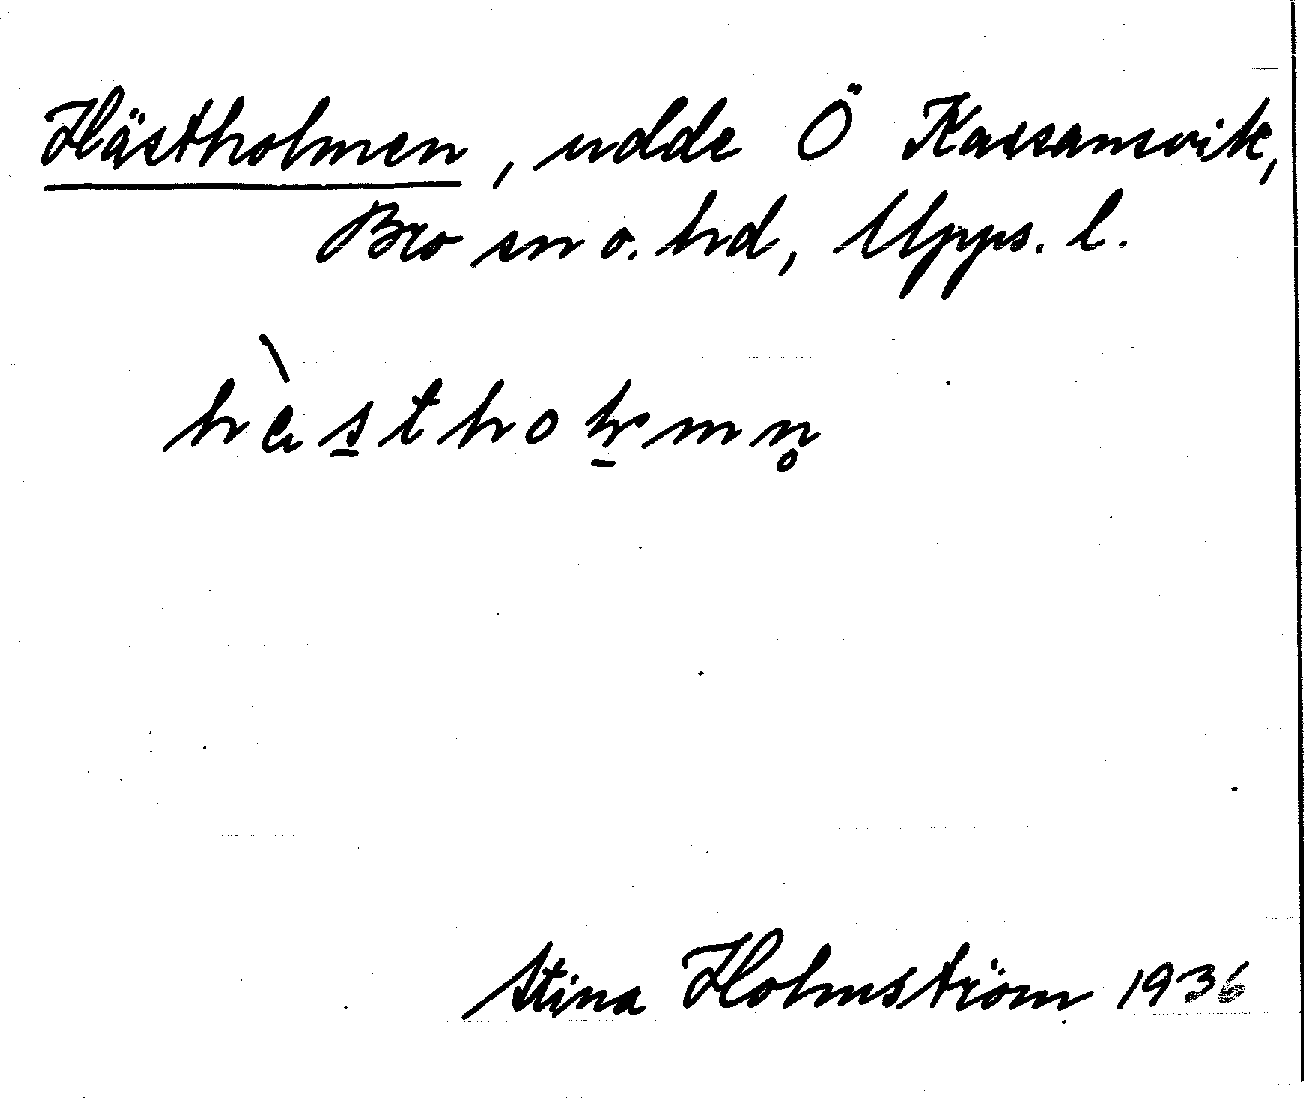 Hästholmen, udde Ö Kassamsvik,
Bro sn o. hd, Upps. l.
Stina Holmström 1936